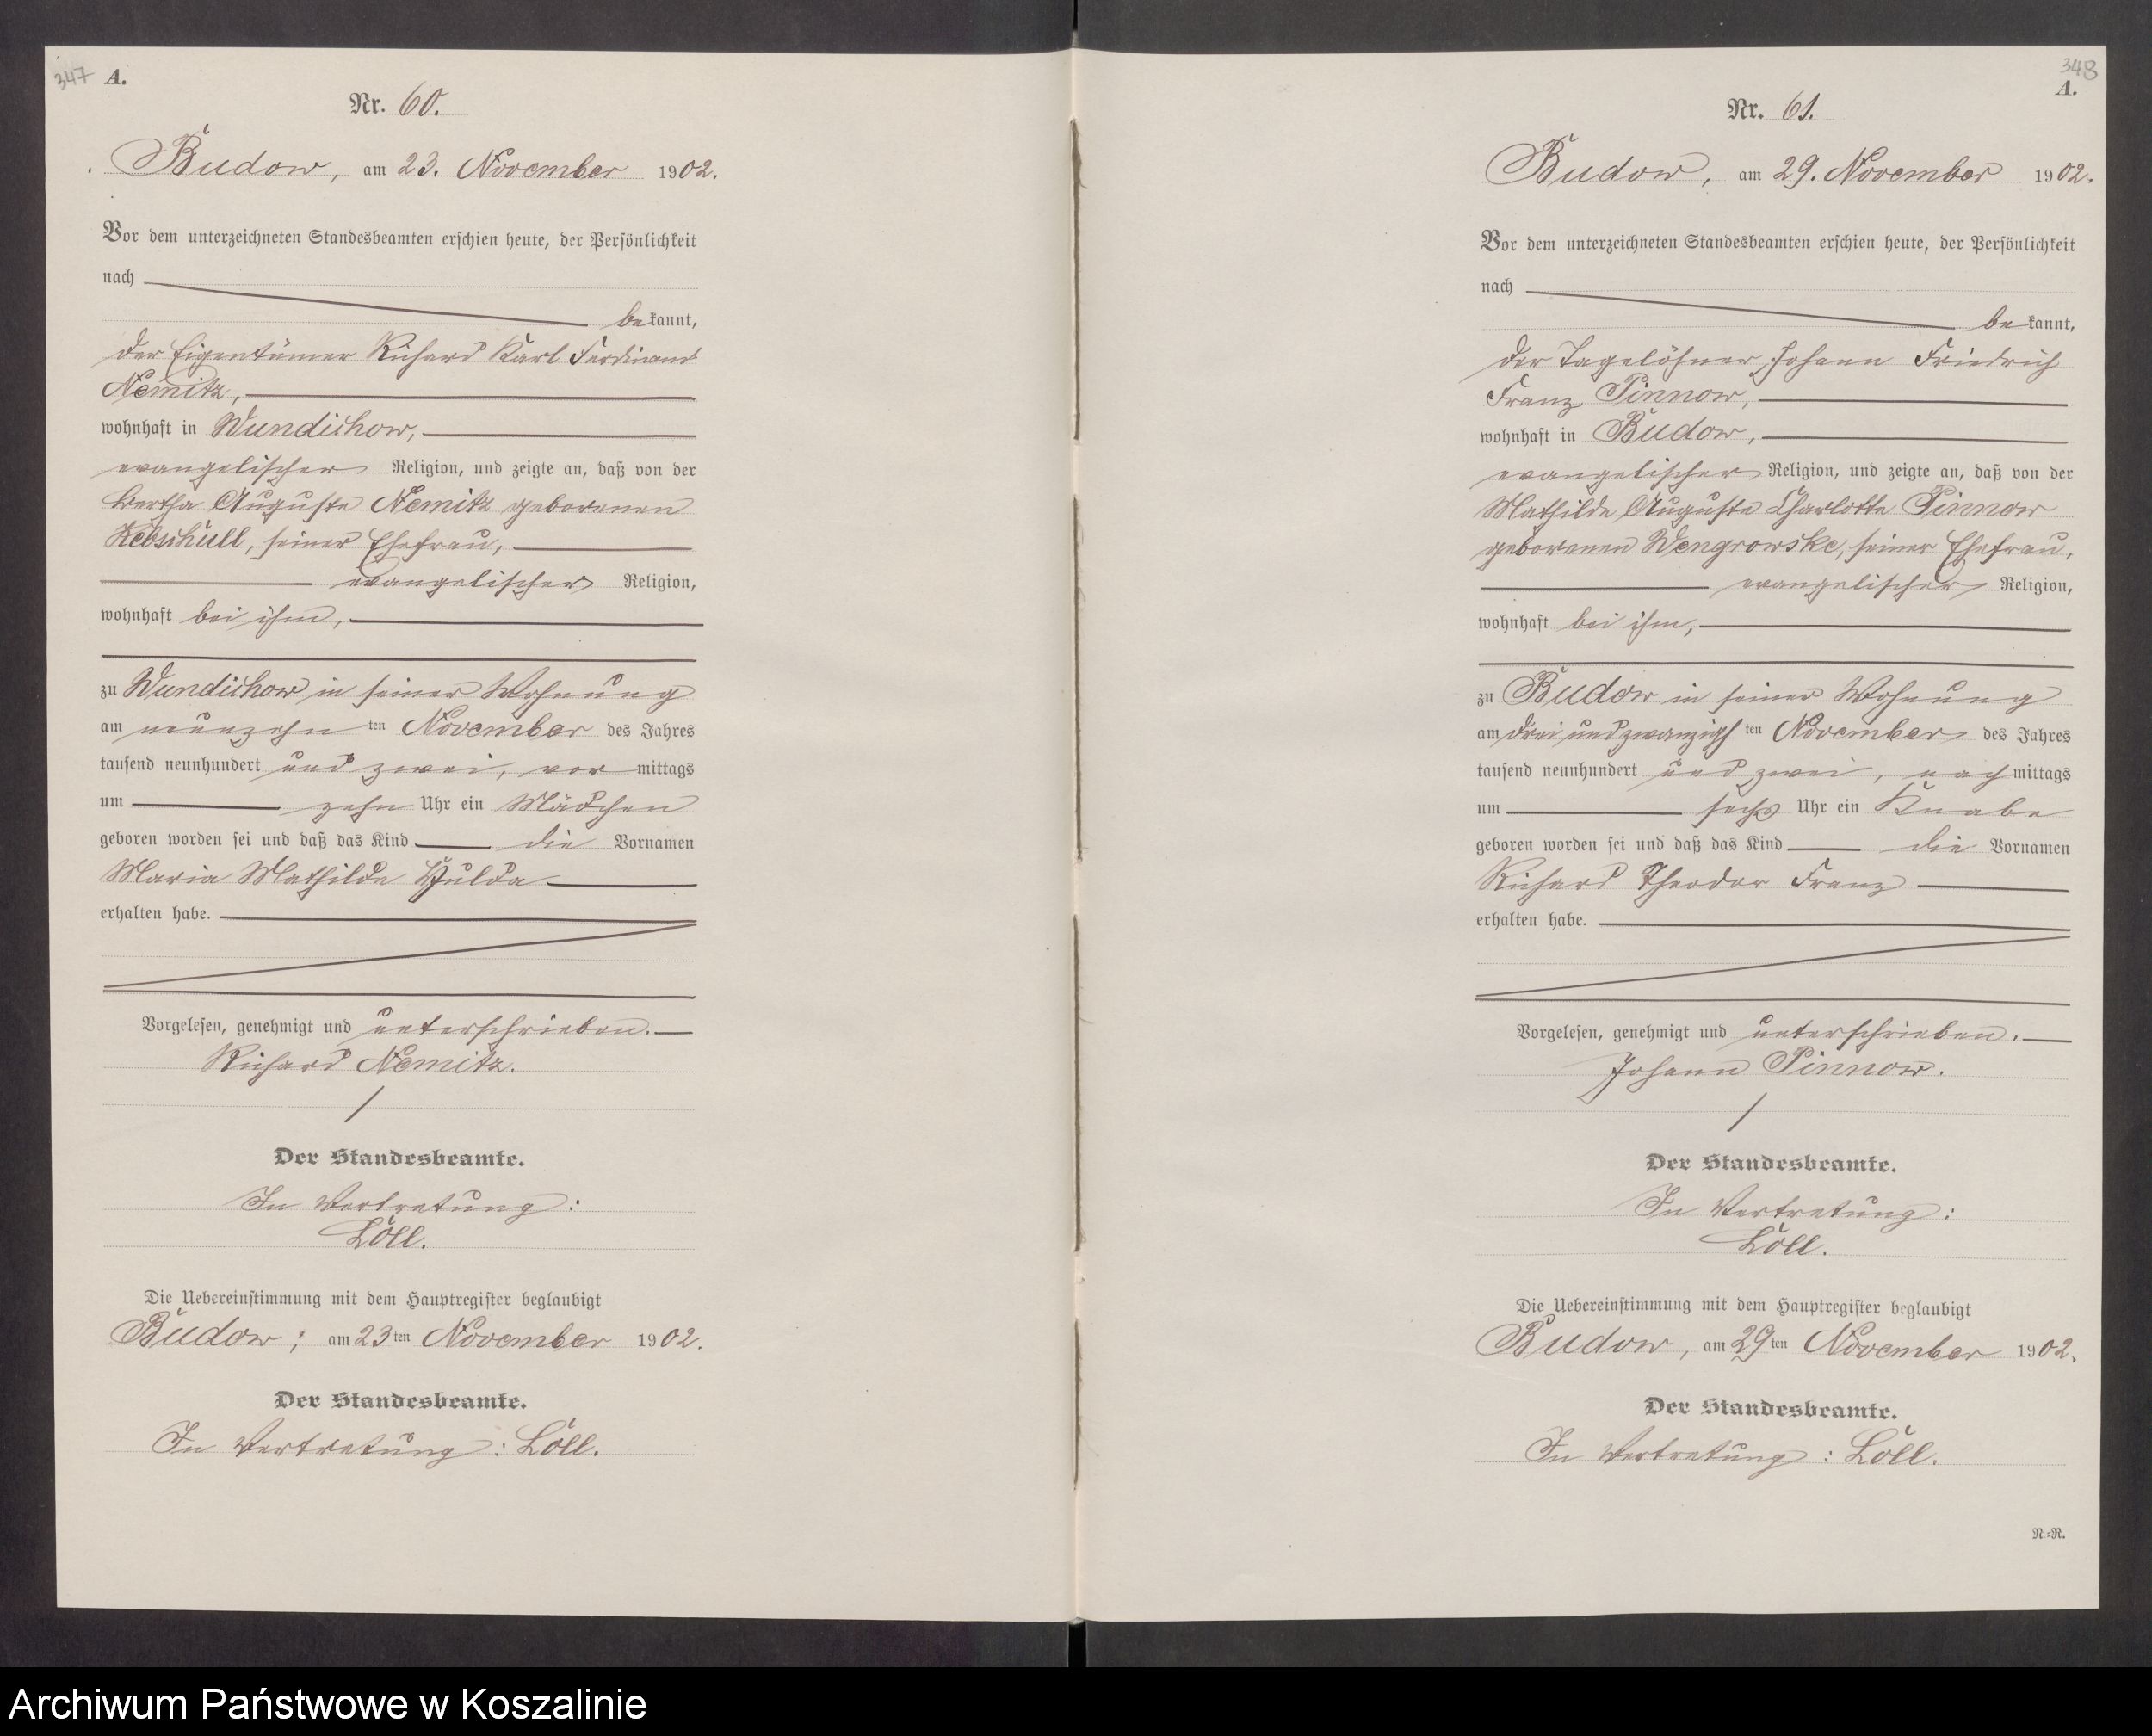 347 A.
Nr. 60.
Budow, am 23. November 1902.
Vor dem unterzeichneten Standesbeamten erschien heute, der Persönlichkeit
nach
bekannt,
der Eigentümer Richard Karl Ferdinand
Nemitz,
wohnhaft in Wundichow,
evangelischer Religion, und zeigte an, daß von der
Bertha Auguste Nemitz geborenen
Kebschull, seiner Ehefrau,
evangelischer Religion,
wohnhaft bei ihm,
zu Wundichow in seiner Wohnung
am neunzehn ten November des Jahres
tausend neunhundert und zwei, vor mittags
um zehn Uhr ein Mädchen
geboren worden sei und daß das Kind die Vornamen
Maria Mathilde Hulda
erhalten habe.
Vorgelesen, genehmigt und unterschrieben.
Richard Nemitz.
Der Standesbeamte.
In Vertretung:
Löll.
Die Uebereinstimmung mit dem Hauptregister beglaubigt
Budow, am 23ten November 1902.
Der Standesbeamte.
In Vertretung: Löll.
348
A.
Nr. 61.
Budow, am 29. November 1902.
Vor dem unterzeichneten Standesbeamten erschien heute, der Persönlichkeit
nach
bekannt,
der Tagelöhner Johann Friedrich
Franz Pinnow,
wohnhaft in Budow,
evangelischer Religion, und zeigte an, daß von der
Mathilde Auguste Charlotte Pinnow
geborenen Wengrowske, seiner Ehefrau,
evangelischer Religion,
wohnhaft bei ihm,
zu Budow in seiner Wohnung
am drei und zwanzigsten November des Jahres
tausend neunhundert und zwei, nachmittags
um sechs Uhr ein Knabe
geboren worden sei und daß das Kind die Vornamen
Richard Theodor Franz
erhalten habe.
Vorgelesen, genehmigt und unterschrieben.
Johann Pinnow.
Der Standesbeamte.
In Vertretung:
Löll.
Die Uebereinstimmung mit dem Hauptregister beglaubigt
Budow, am 29ten November 1902.
Der Standesbeamte.
In Vertretung: Löll.
N=R.
Archiwum Państwowe w Koszalinie